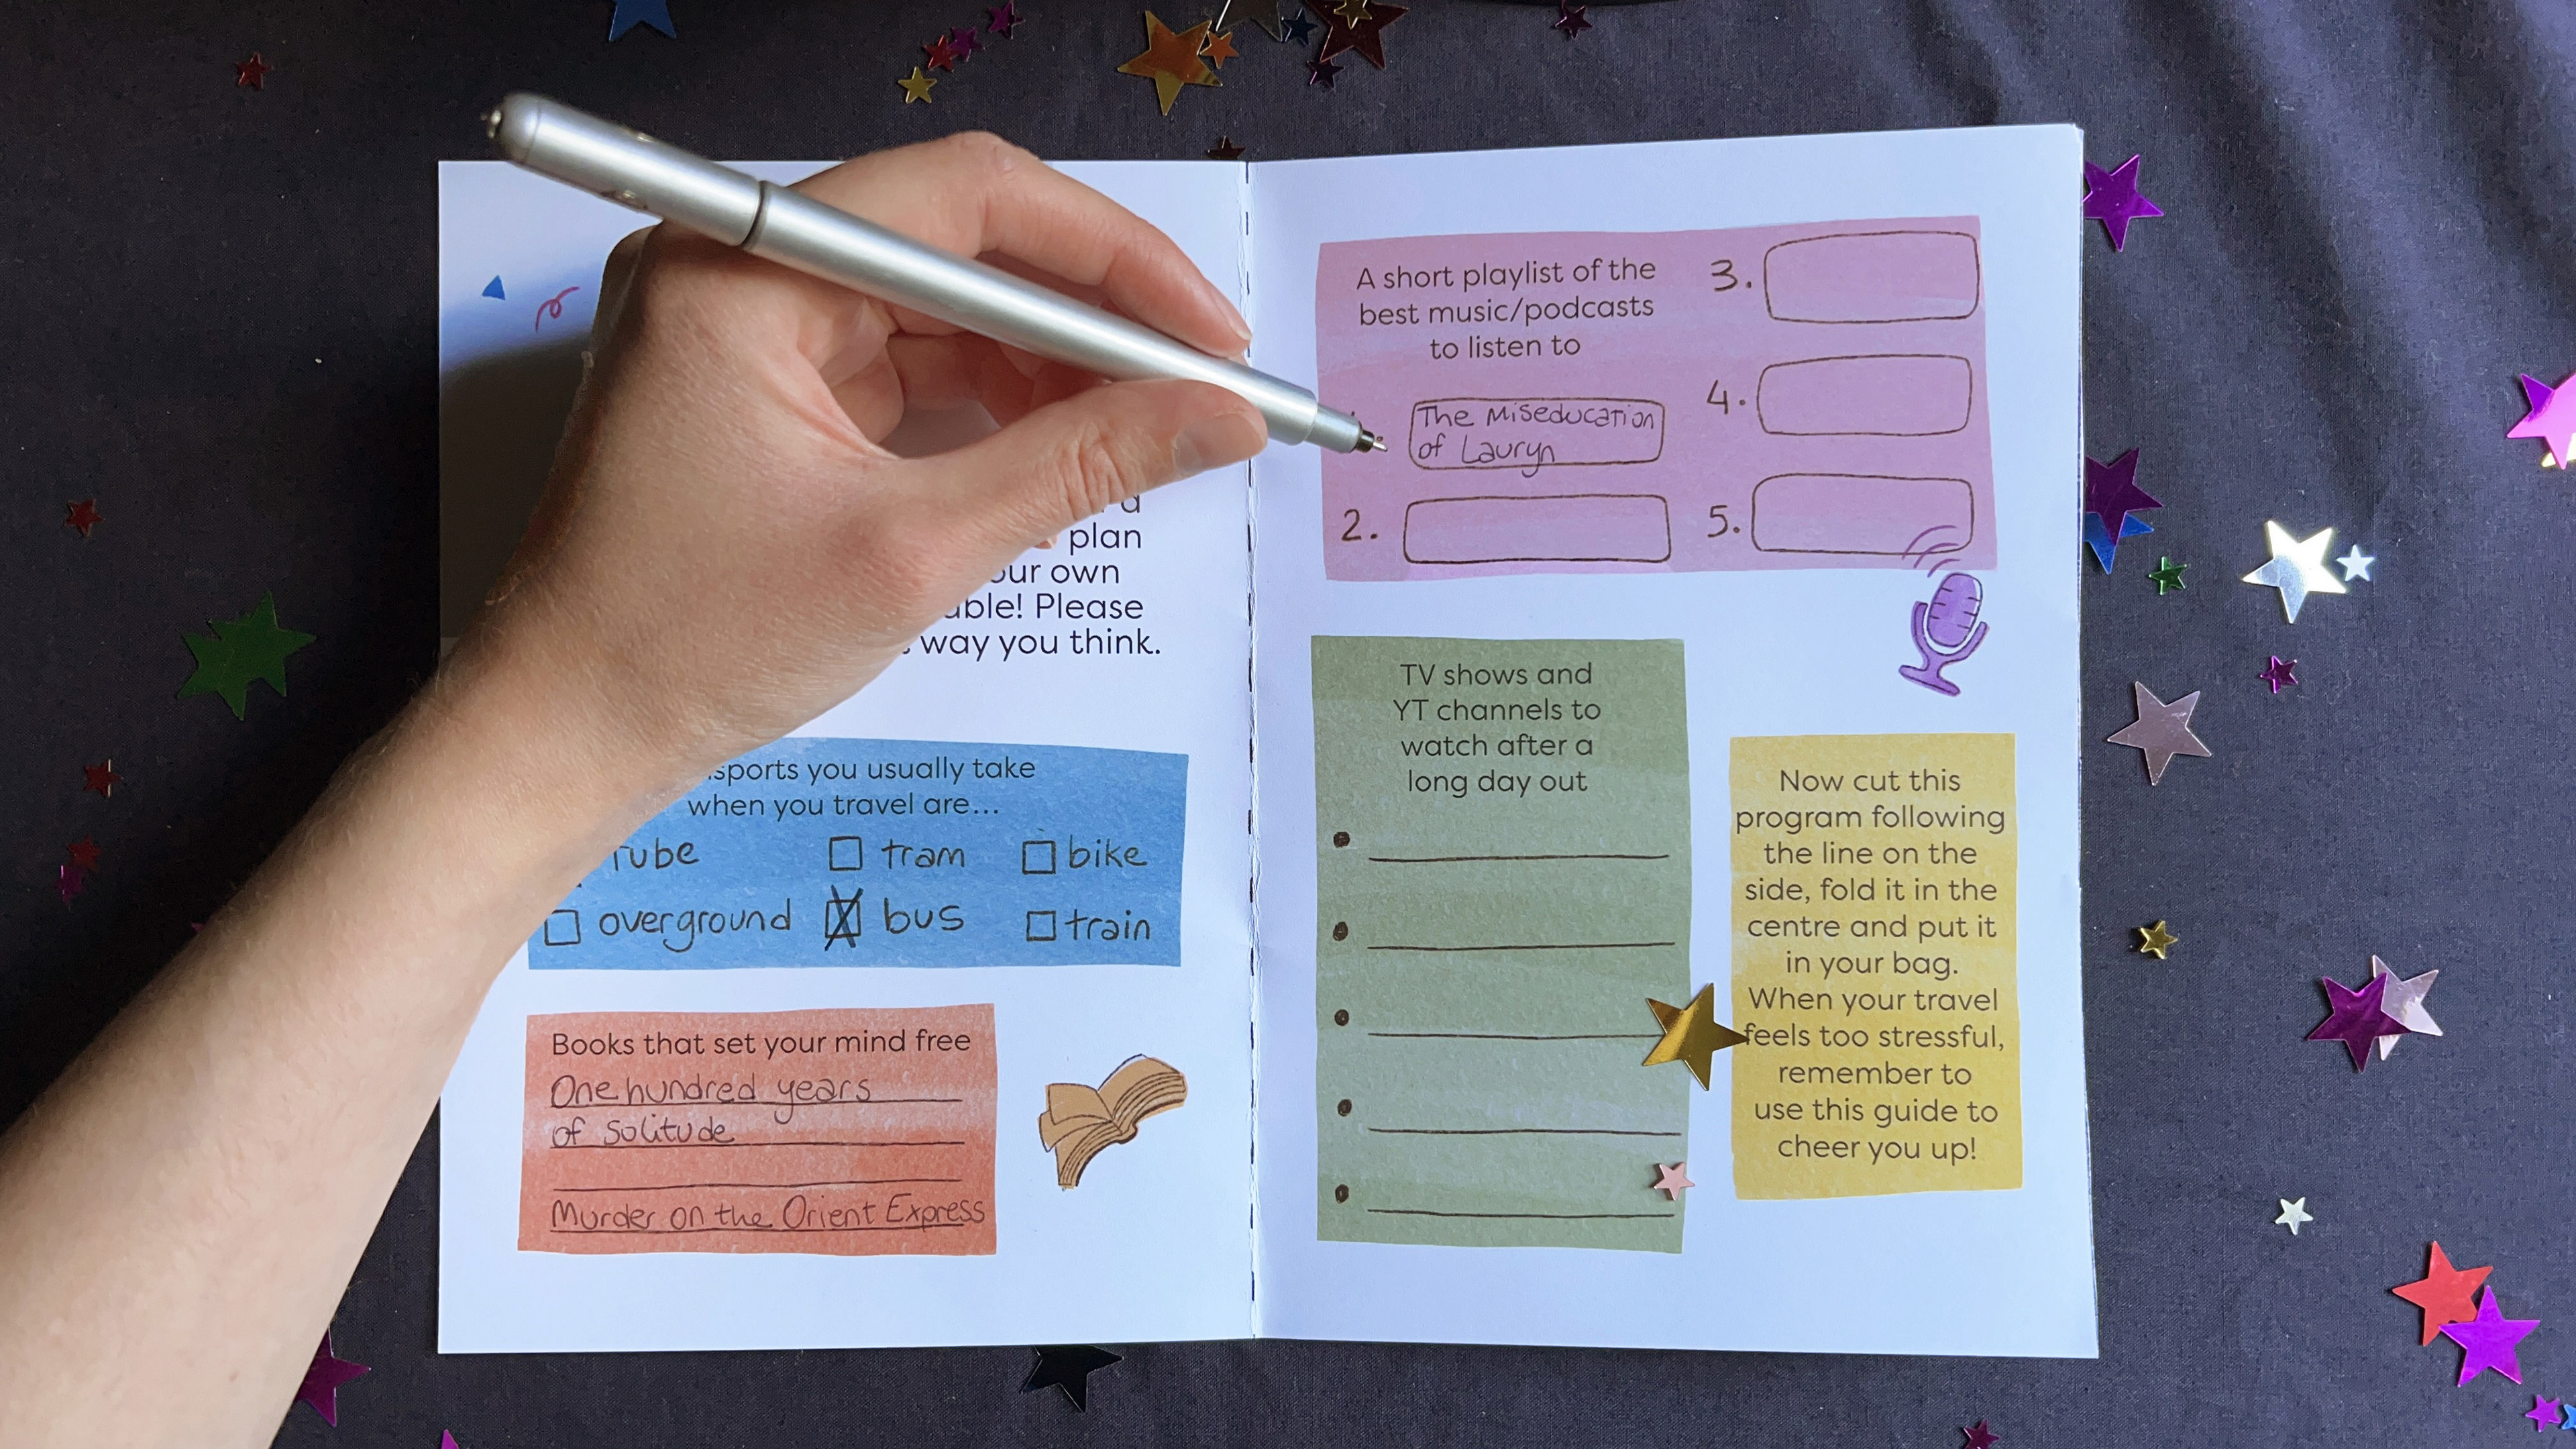 plan
own
Please
way you think.
you usually take
when you travel are...
Tube
tram
bike
overground
bus
train
Books that set your mind free
One hundred years
of solitude
Murder on the Orient Express
A short playlist of the
best music/podcasts
to listen to
The Miseducation
of Lauryn
2.
3.
4.
5.
TV shows and
YT channels to
watch after a
long day out
Now cut this
program following
the line on the
side, fold it in the
centre and put it
in your bag.
When your travel
feels too stressful,
remember to
use this guide to
cheer you up!